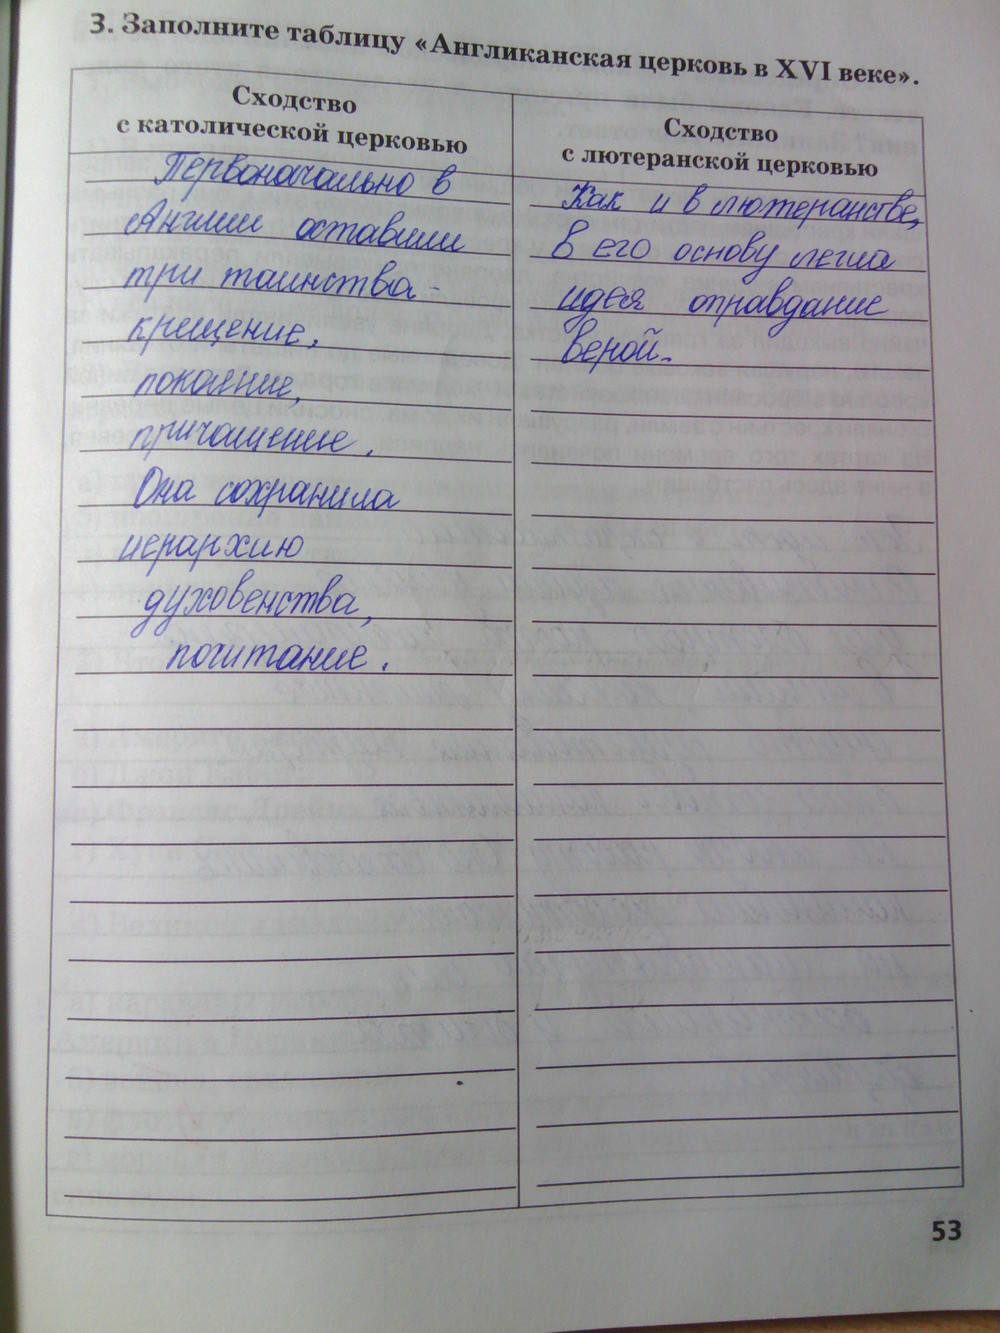 3. Заполните таблицу «Англиканская церковь в XVI веке».
Сходство
с католической церковью
Первоначально в
Англии оставили
три таинства -
крещение,
покаяние,
причащение.
Она сохранила
иерархию
духовенства,
почитание.
Сходство
с лютеранской церковью
Как и в лютеранстве,
в его основу легла
идея оправдание
верой.
53